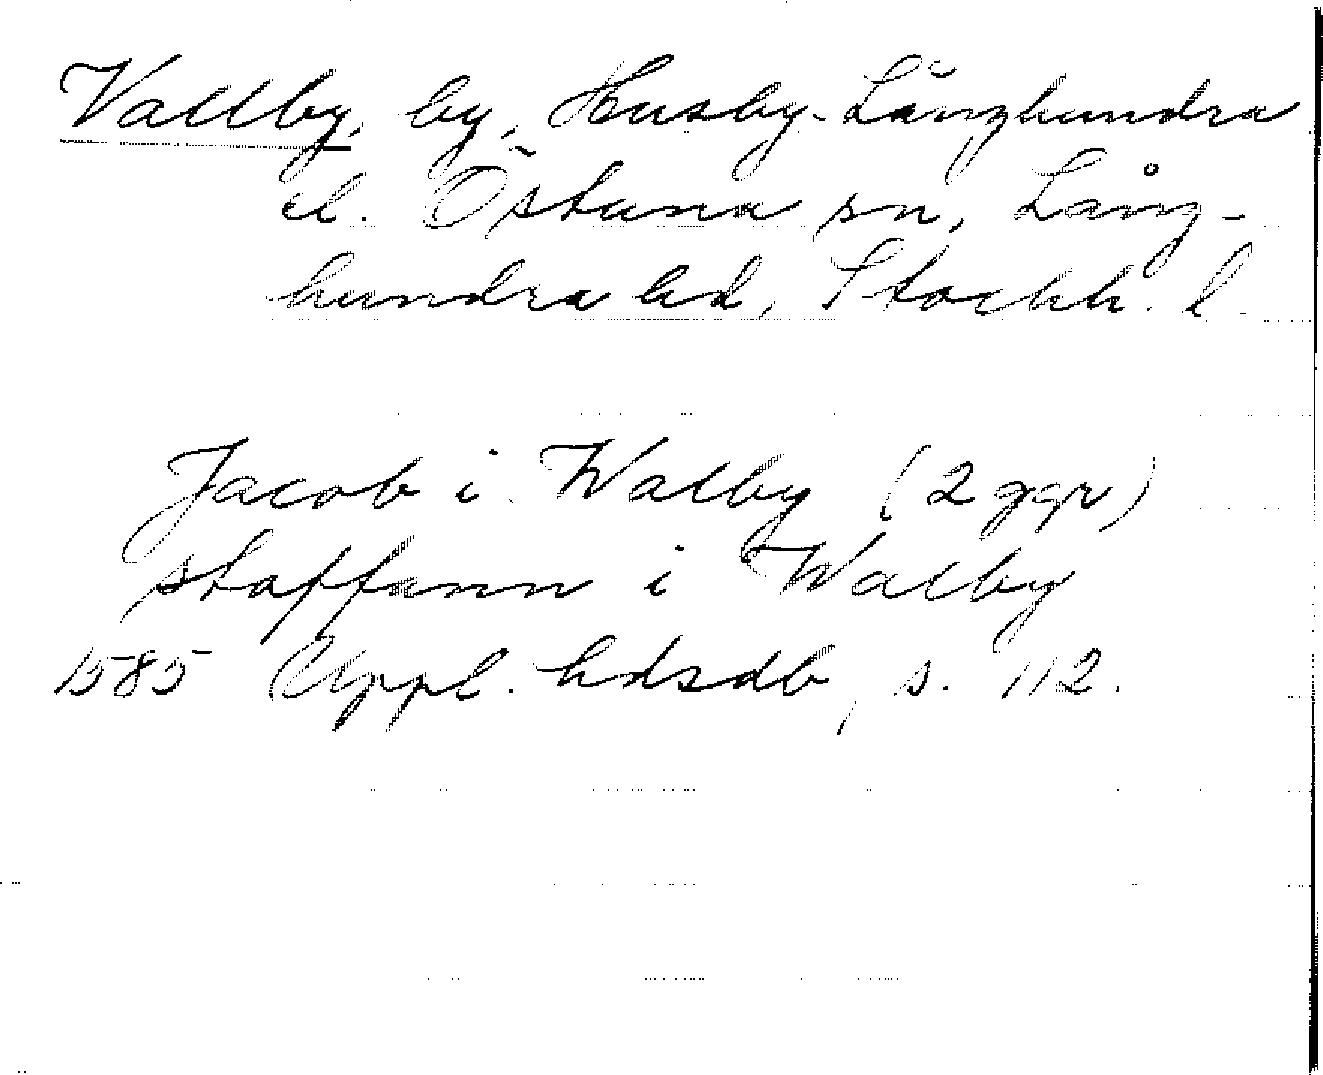 Vallby, by, Husby-Långhundra
el. Östuna sn, Lång-
hundra hd, Stockh. l.
Jacob i Walby (2 ggr)
staffann i Walby
1585 Uppl. hdsdb, s. 112.